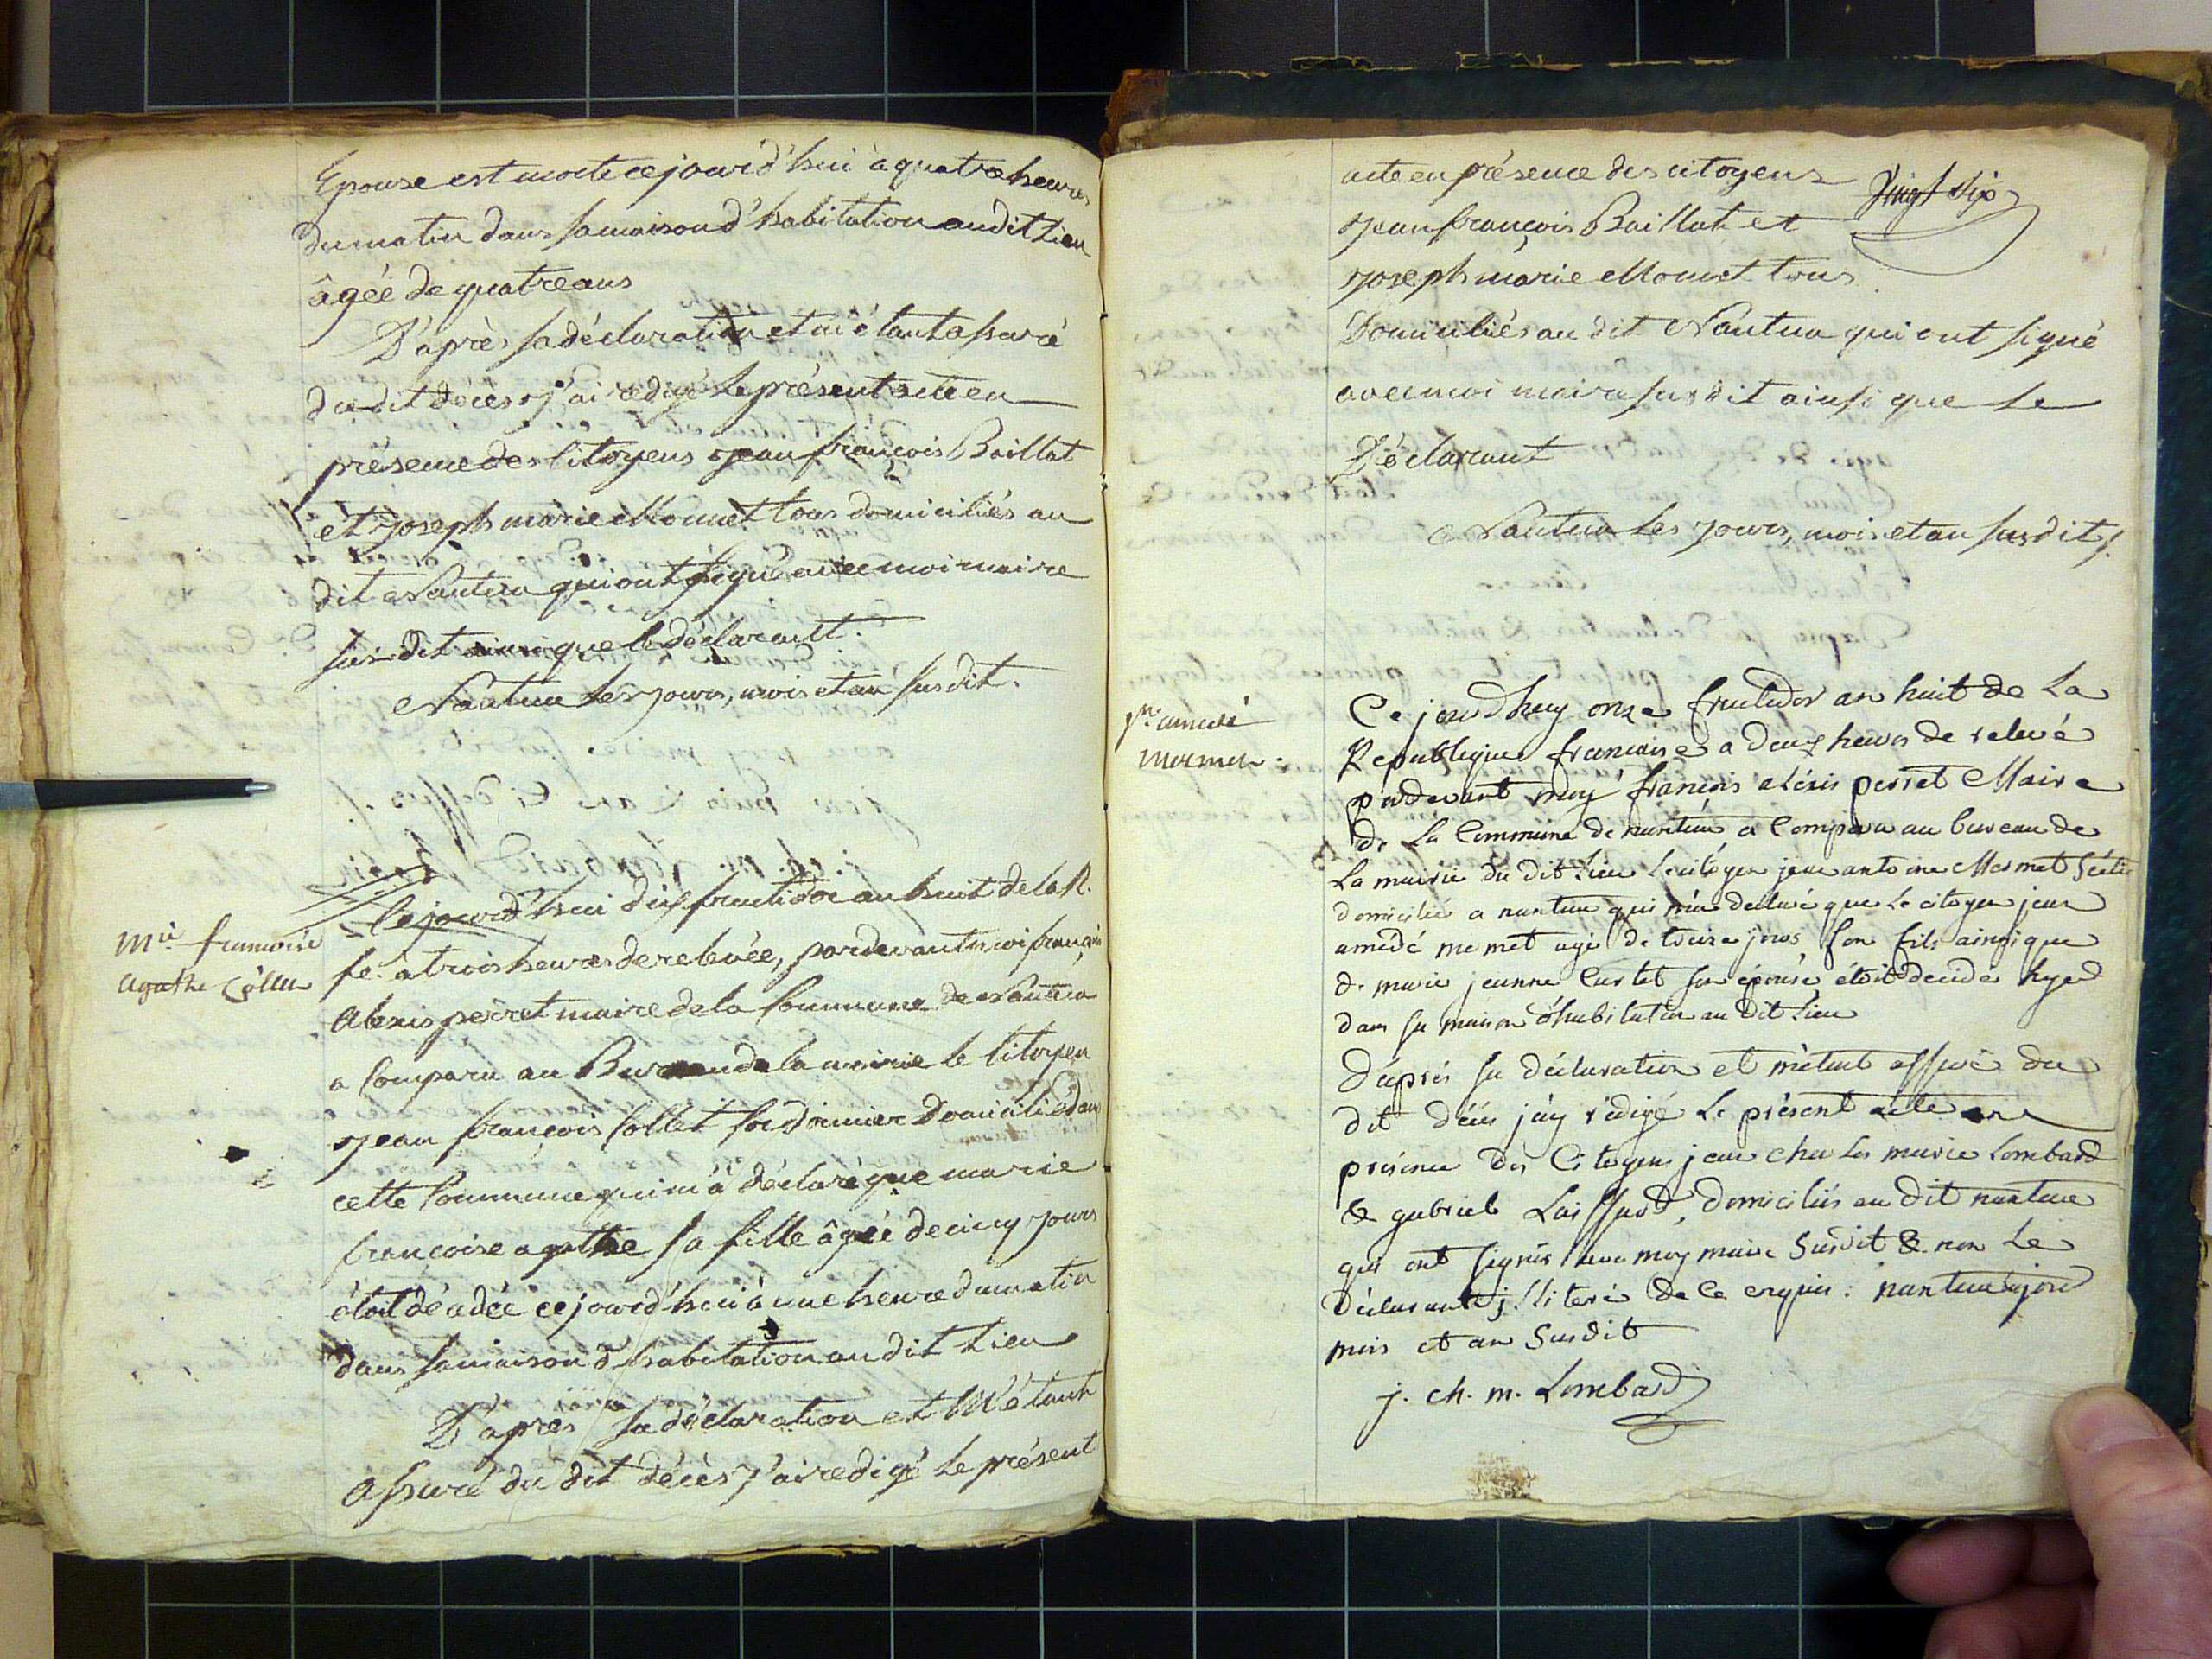 Epouse est morte cejourd'hui à quatre heures
du matin dans sa maison d'habitation audit Lieu
âgée de quatre ans
D'après sa déclaration et m'étant assuré
du dit décès j'ai redigé le présent acte en
présence des Citoyens jean françois Baillat
et joseph marie Monnet tous domiciliés au
dit Nantua qui ont signé avec moi maire
sus dit ainsi que le déclarant.
Nantua les jours, mois et an susdit.
Mie francoise
agathe Collet
Cejourd'hui dix fructidor an huit de la R.
fe. à trois heures de relevée, pardevant moi françois
Alexis perret maire de la Commune de Nantua
a Comparu au Bureau de la mairie le Citoyen
jean françois Collet Cordonnier Domicilié dans
cette Commune qui m'a déclaré que marie
francoise agathe sa fille âgée de cinq jours
étoit décédée cejourd'hui à une heure du matin
dans sa maison d'habitation au dit Lieu
D'après sa déclaration et M'étant
assuré du dit décès j'ai redigé le présent
acte en présence des citoyens
Vingt six
jean françois Baillat et
joseph marie Monnet tous
Domiciliés au dit Nantua qui ont signé
avec moi maire susdit ainsi que le
Déclarant
Nantua les jours, mois et an susdits.
jn amedé
mermet.
Ce jourdhuy onze fructidor an huit de La
Republique francaise a deux heures de relevé
pardevant moy françois alexis perret Maire
de La Commune de nantua a Comparu au bureau de
La mairie du dit Lieu Le citoyen jean antoine Mermet
domicilié a nantua qui m'a declaré que Le citoyen jean
amédé mermet agé de treize jours son fils ainsi que
de marie jeanne Curtet son épouse étoit decédé hyer
dans sa maison d'habitation au dit Lieu
D'après sa déclaration et m'étant assuré du
dit décès j'ay rédigé Le présent acte en
présence des Citoyens jean charles marie Lombard
& gabriel Laissard, domiciliés au dit nantua
qui ont signés avec moy maire Susdit & non Le
déclarant illiteré de ce enquis: nantua jour
mois et an Susdit
j. ch. m. Lombard